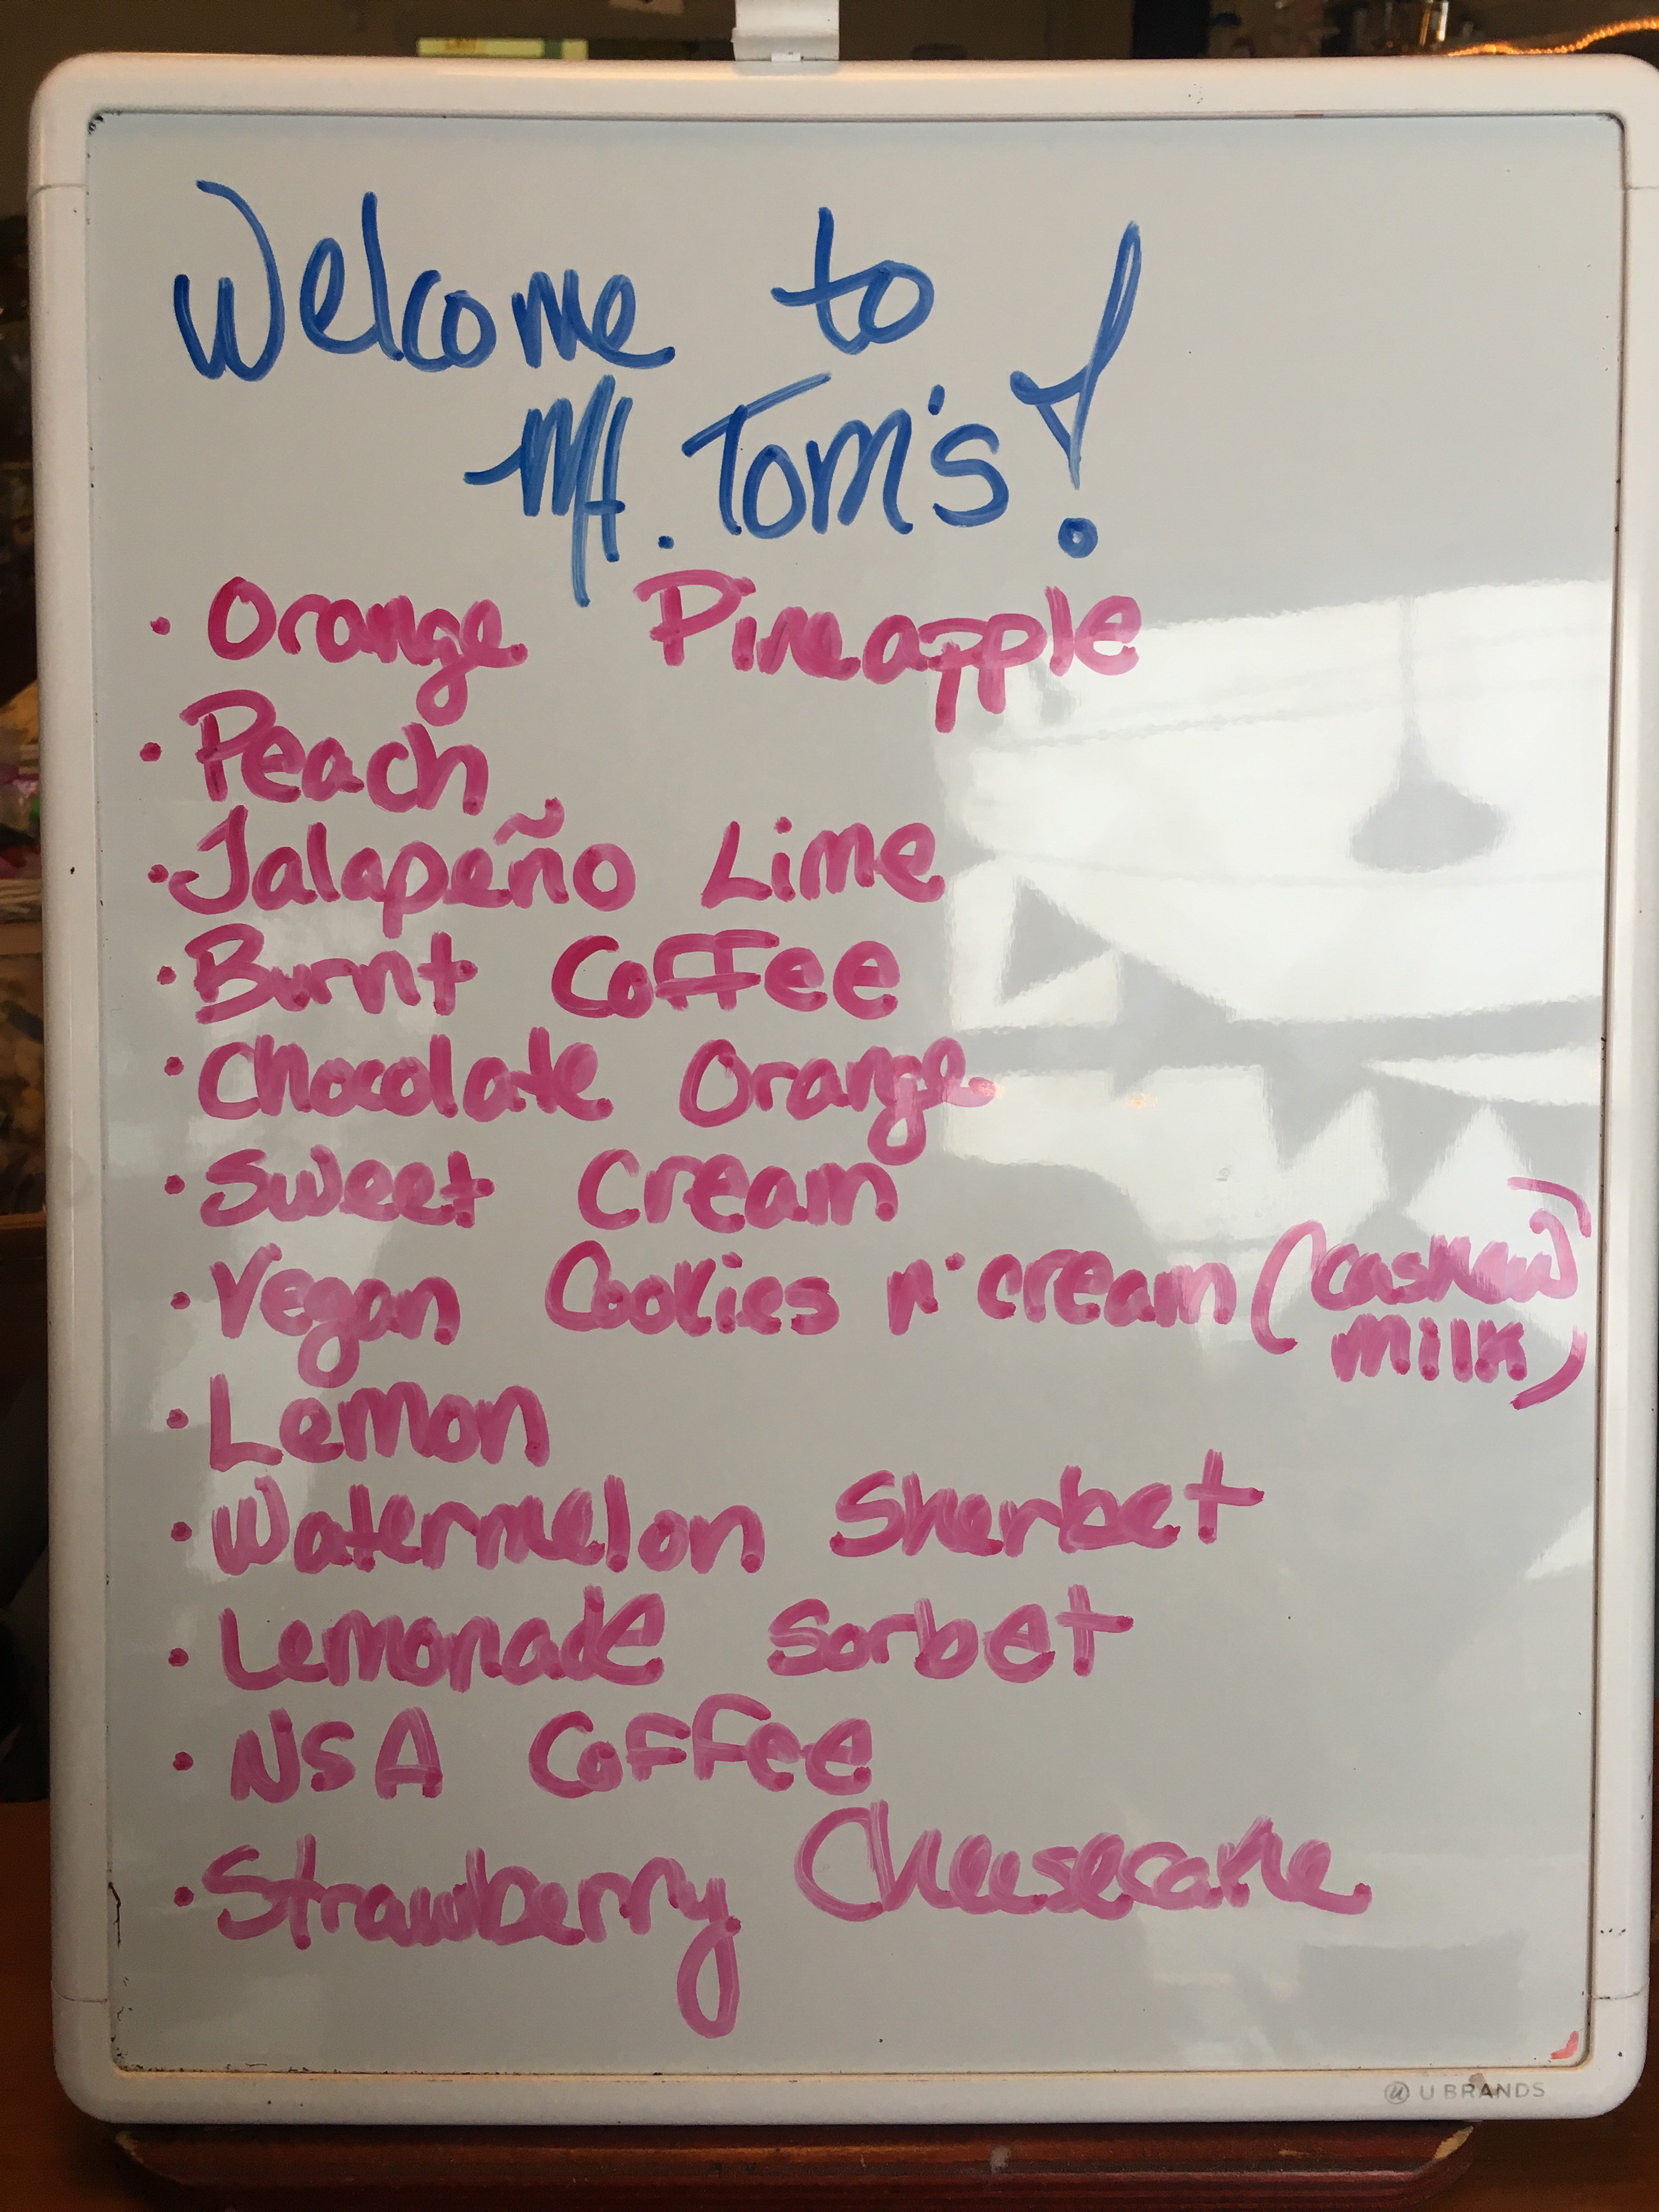 Welcome to
Mt. Tom's!
• Orange Pineapple
• Peach
• Jalapeño Lime
• Burnt Coffee
• Chocolate Orange
• Sweet Cream
• Vegan Cookies n' cream (cashew
milk)
• Lemon
• Watermelon Sherbet
• Lemonade Sorbet
• NSA Coffee
• Strawberry Cheesecake
U BRANDS